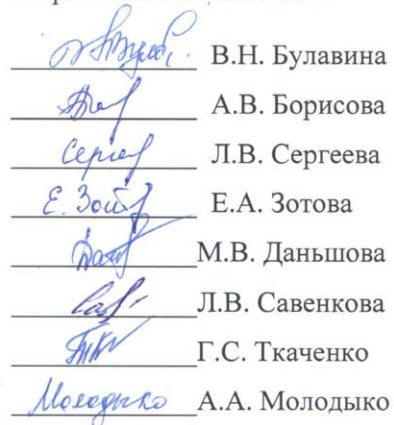 В.Н. Булавина
А.В. Борисова
Л.В. Сергеева
Е. Зот Е.А. Зотова
М.В. Даньшова
Л.В. Савенкова
Г.С. Ткаченко
Молодыко А.А. Молодыко